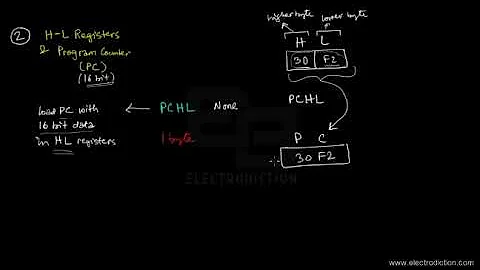 2 H-L Registers
& Program Counter
(PC)
(16 bit)
load PC with
16 bit data
in HL registers
← PCHL None
1 byte
higher byte lower byte
H L
30 F2
PCHL
P C
30 F2
ELECTRODICTION
www.electrodiction.com